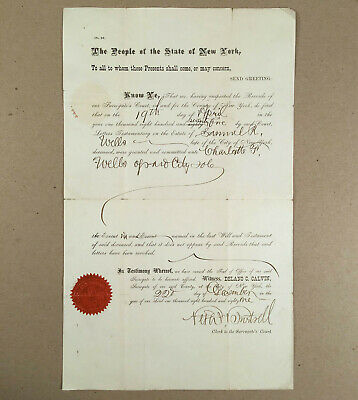 The People of the State of New York,
To all to whom these Presents shall come, or may concern,
SEND GREETING:
Know Ye, That we, having inspected the Records of
our Surrogate's Court, in and for the County of New York, do find
that on the 19th day of April in
the year one thousand eight hundred and seventy one by said Court,
Letters Testamentary on the Estate of Samuel R.
Wells late of the City of New York,
deceased, were granted and committed unto Charlotte F.
Wells of said City, sole
the Executrix named in the last Will and Testament
of said deceased, and that it does not appear by said Records that said
letters have been revoked.
In Testimony Whereof, we have caused the Seal of Office of our said
Surrogate to be hereunto affixed. Witness, DELANO C. CALVIN,
Surrogate of our said County, at City of New York, the
22nd day of December in
the year of our Lord one thousand eight hundred and eighty one
Clerk to the Surrogate's Court.